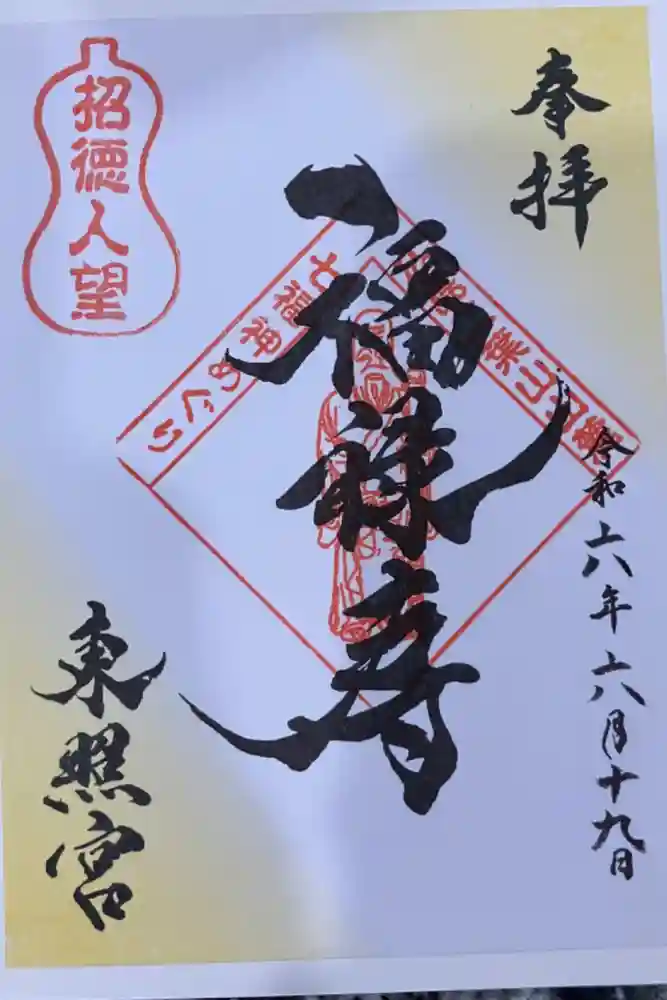 奉拝
令和六年六月十九日
福禄寿
七福神めぐり
招徳人望
東照宮